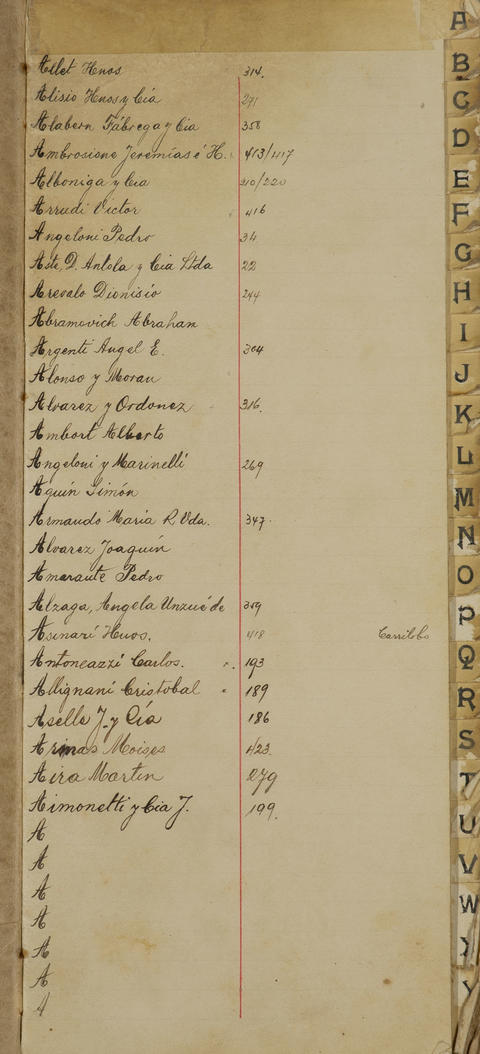 Ailet Hnos 314.
Alisio Hnos y Cía 271
Alabern Fábrega y Cia 358
Ambrosione Jeremías é H. 413/417
Alboniga y Cia 210/220
Arrudi Victor 416
Angeloni Pedro 34
Aste, D. Antola y Cia Ltda 22
Arevalo Dionisio 244
Abramovich Abrahan
Argenti Angel E. 304
Alonso y Moran
Alvarez y Ordonez 316.
Ambort Alberto
Angeloni y Marinelli 269
Aguín Simón
Armando Maria R Vda. 347.
Alvarez Joaquín
Amarante Pedro
Alzaga, Angela Unzué de 359
Asinari Hnos. 418 Carrilobo
Antoneazzi Carlos. 193
Allignani Cristobal 189
Aselle J. y Cía 186
Armas Moises 423.
Aira Martin 279
Aimonetti y Cia J. 199.
A
A
A
A
A
A
A
A
B
C
D
E
F
G
H
I
J
K
L
M
N
O
P
Q
R
S
T
U
V
W
Y